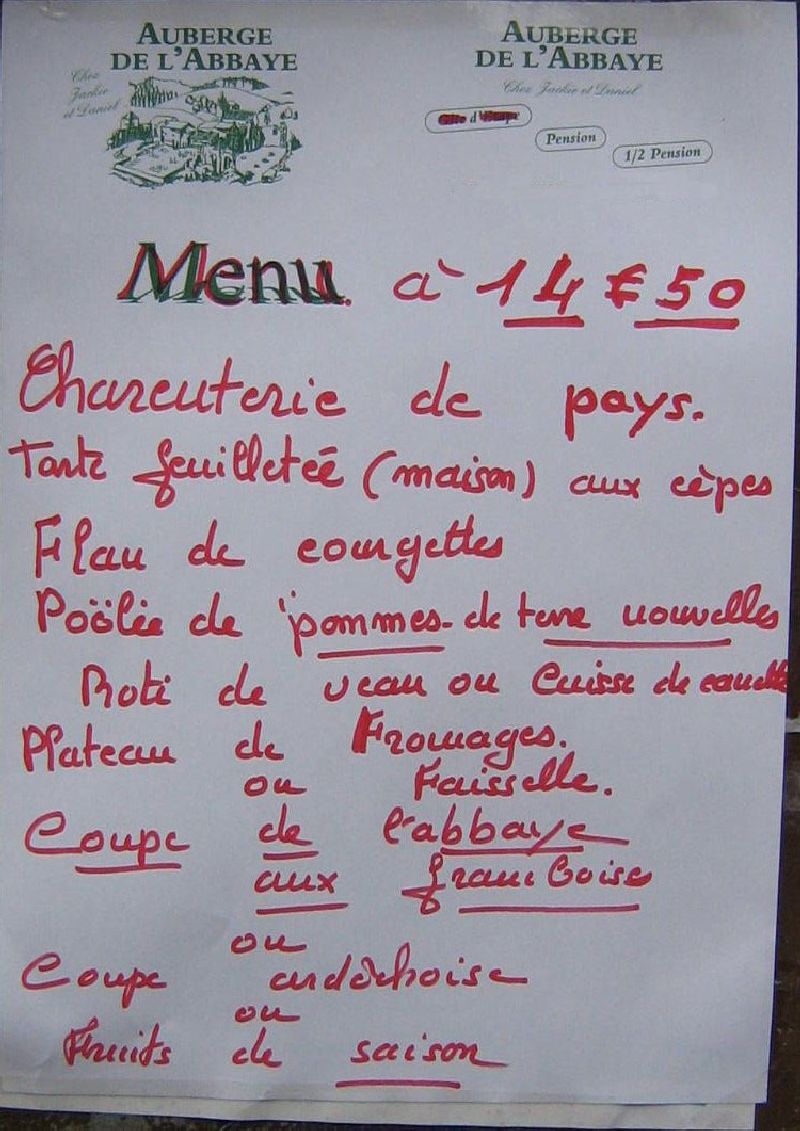 AUBERGE
DE L'ABBAYE
Chez
Jackie
et Daniel
AUBERGE
DE L'ABBAYE
Chez Jackie et Daniel
Pension
1/2 Pension
Menu à 14 € 50
Charcuterie de pays.
Tarte feuilleteé (maison) aux cèpes
Flan de courgettes
Poölée de pommes de terre nouvelles
Roti de veau ou Cuisse de canette
Plateau de Fromages.
ou Faisselle.
Coupe de l'abbaye
aux framboises
ou
Coupe ardèchoise
ou
Fruits de saison